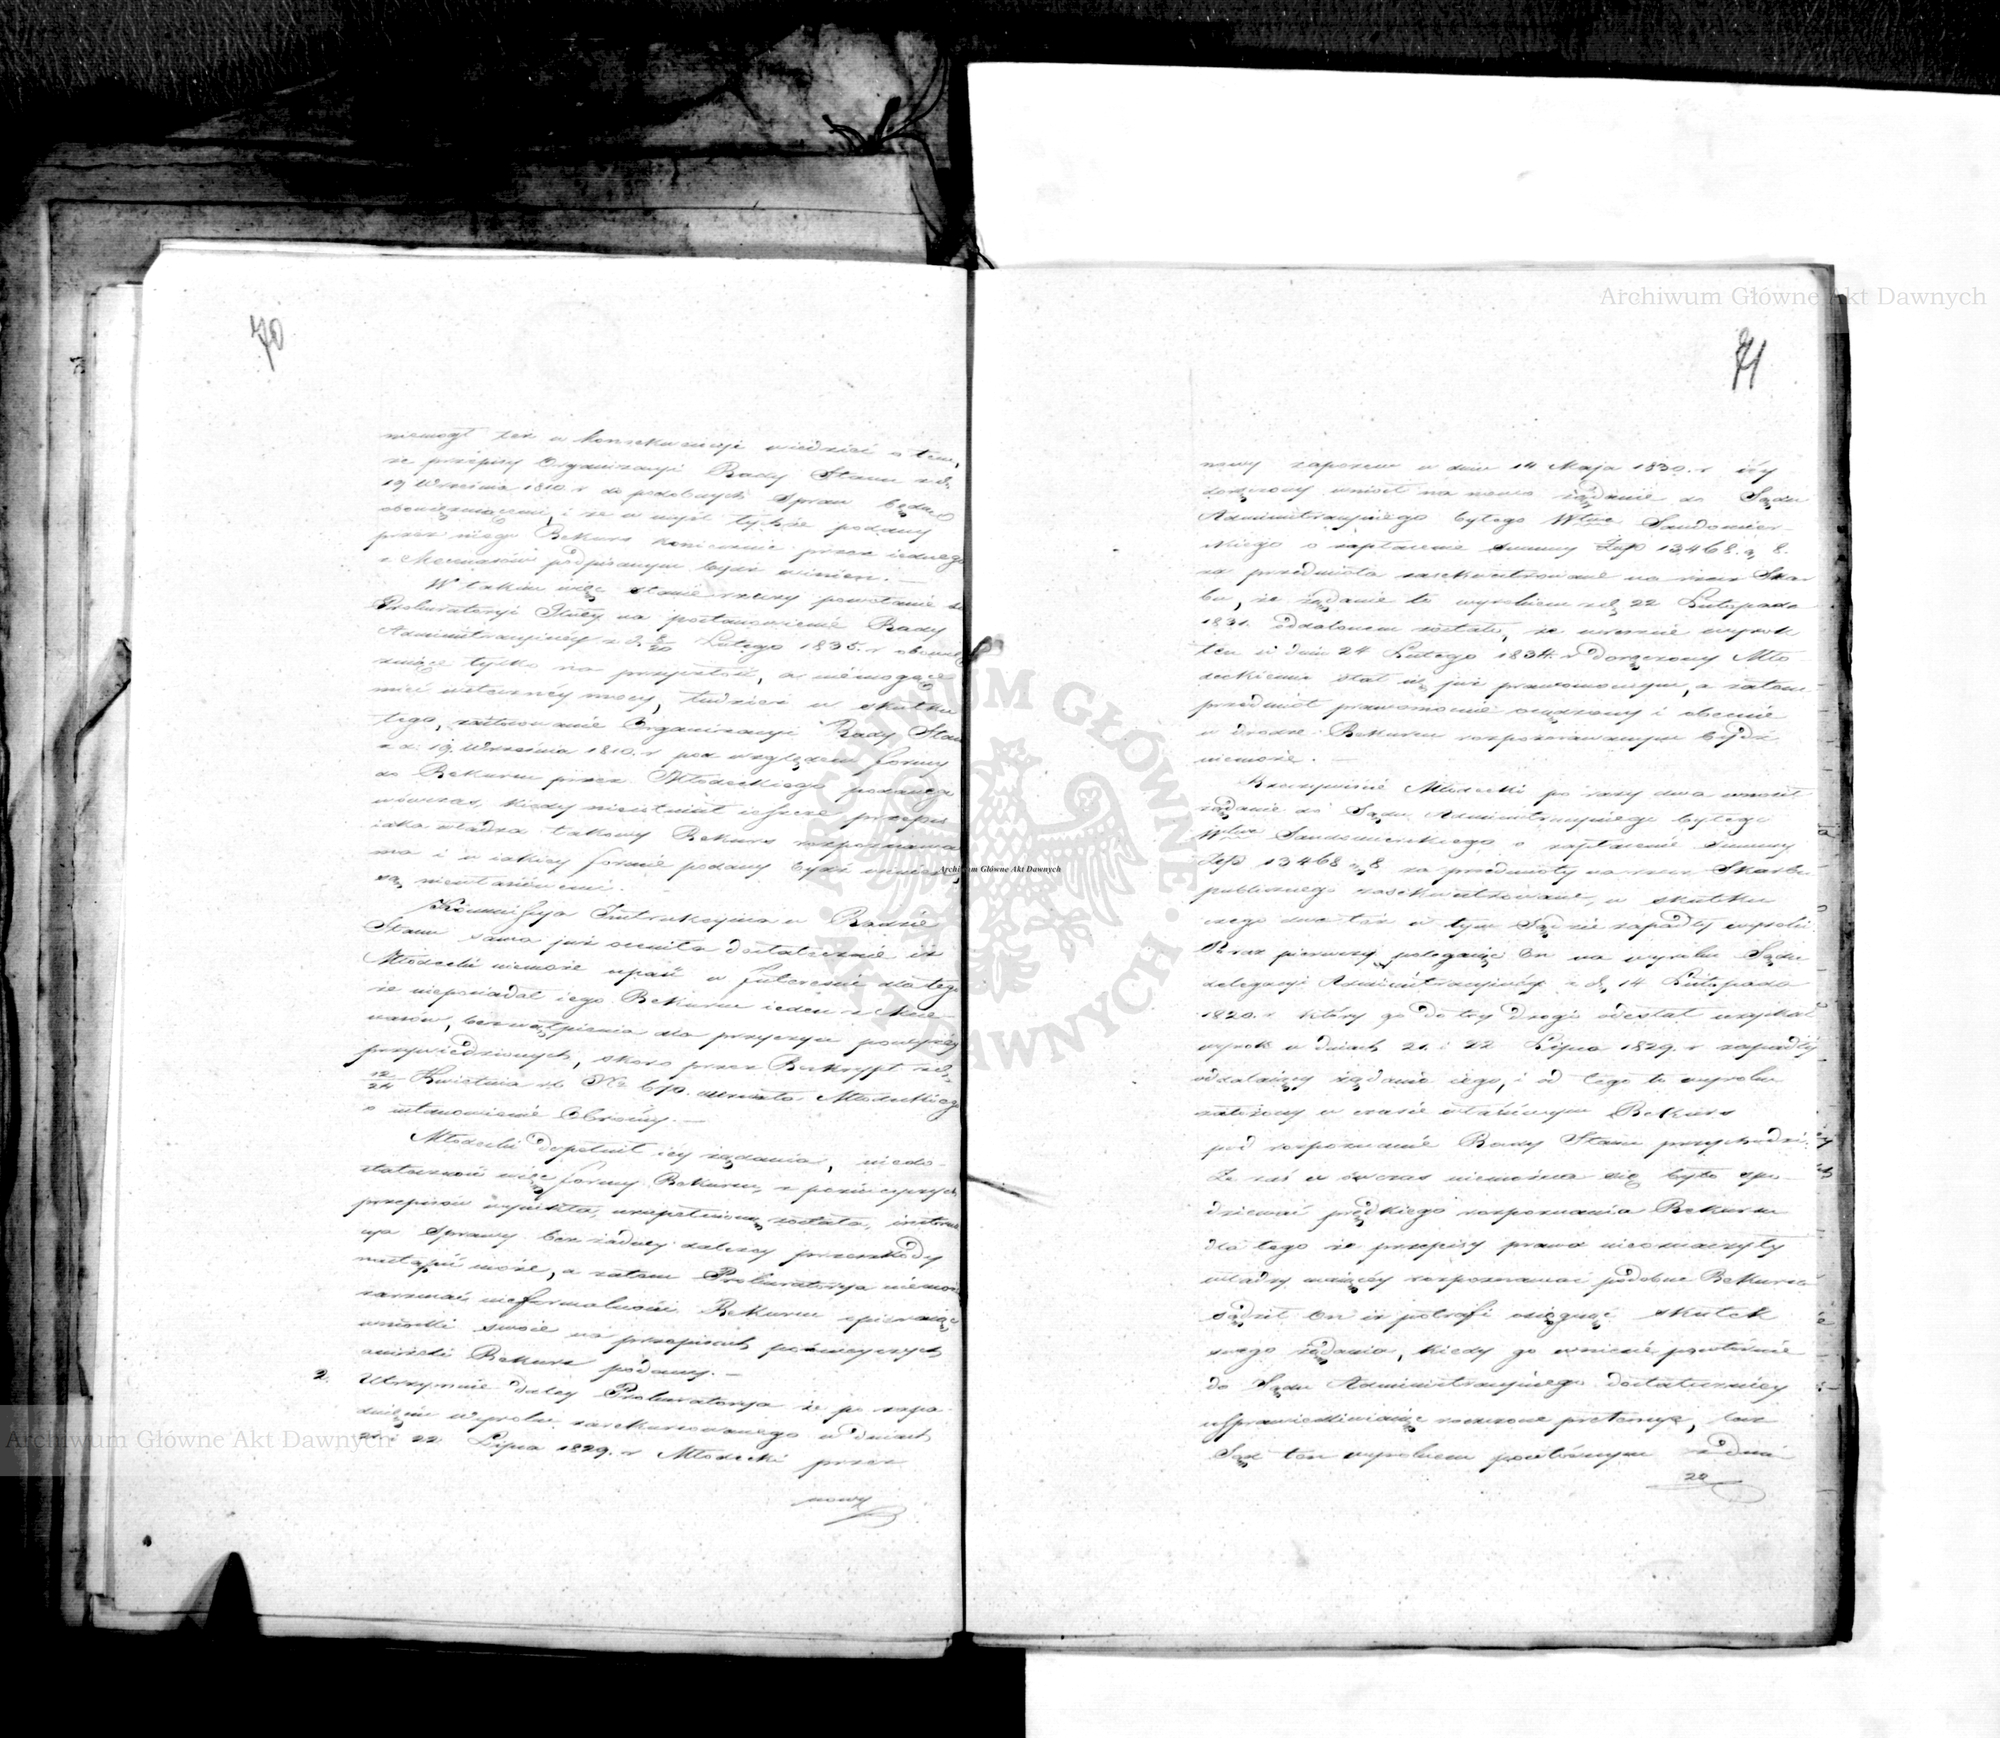 70
niemógł też w konsekwencyi wiedzieć o tem,
że przepisy Organizacyi Rady Stanu z d.
19 Września 1810 r. do podobnych Spraw będą
obowięzującemi, i że w myśl tychże podany
przez niego Rekurs koniecznie przez iednego
z Mecenasów podpisanym bydź winien. —
W takim więc stanie rzeczy powołanie się
Prokuratoryi Służy na postanowienie Rady
Administracyjnéy z d. 8/20 Lutego 1835. r. obowią
zuiące tylko na przyszłość, a niemogące
mieć wstecznéy mocy, tudzież w skutku
tego, zastosowanie Organizacyi Rady Stanu
z d. 19 Września 1810. r. pod względem formy
do Rekursu przez Młodeckiego podanego
wówczas, kiedy nieistniał ieszcze przepis
iaka władza takowy Rekurs rozpoznawać
ma i w iakiey formie podany bydź winien,
są niewłaściwemi. —
Kommissya Instrukcyina w Radzie
Stanu sama już oceniła dostatecznie iż
Młodecki niemoże upaść w Interesie dla tego
że niepodpisał iego Rekursu ieden z Mece-
nasów, bezwątpienia dla przyczyn powyżéy
przywiedzionych, skoro przez Reskrypt z d.
12/24 Kwietnia r. b. No 670. wezwała Młodeckiego
o ustanowienie Obrońcy. —
Młodecki dopełnił iéy żądania, niedo-
stateczność więc formy Rekursu, z późnieyszych
przepisów wynikła, uzupełnioną została, instruk
cya Sprawy bez żadney daley przeszkody
nastąpić może, a zatem Prokuratorya niemoże
zarzucać nieformalności Rekursu opieraiąc
wnioski swoie na przepisach późnieyszych
aniżeli Rekurs podany. —
2. Utrzymuie daley Prokuratorya że po zapa-
dnięciu wyroku zarekursowanego w dniach
21 i 22 Lipca 1829. r. Młodecki przez
nowy
71
nowy zapozew w dniu 14 Maja 1830. r. iéy
doręczony wniósł na nowo żądanie do Sądu
Administracyjnego byłego Wtwa Sandomier-
skiego o zapłacenie summy Złp 13468. g. 8.
za przedmiota zasekwestrowane na rzecz Skar
bu, że żądanie to wyrokiem z d. 22 Listopada
1831. oddalonem zostało, że wreszcie wyrok
ten w dniu 24 Lutego 1834. r. doręczony Mło-
deckiemu stał się już prawomocnym, a zatem
przedmiot prawomocnie osądzony i obecnie
w drodze Rekursu rozpoznawanym bydź
niemoże. —
Rzeczywiście Młodecki po razy dwa wnosił
żądanie do Sądu Administracyinego byłego
Wtwa Sandomierskiego o zapłacenie summy
Złp 13468 g. 8 za przedmioty na rzecz Skarbu
publicznego zasekwestrowane, w skutku
czego dwa téż w tym Sądzie zapadły wyroki.
Raz pierwszy polegaiąc On na wyroku Sądu
delegacyi Administracyinéy z d. 14 Listopada
1820. r. który go do téy drogi odesłał uzyskał
wyrok w dniach 21. i 22 Lipca 1829. r. zapadły
oddalaiący żądanie iego, i od tego to wyroku
założony w czasie właściwym Rekurs
pod rozpoznanie Rady Stanu przychodzi.
Że zaś w ów czas niemożna się było spo-
dziewać prędkiego rozpoznania Rekursu
dla tego że przepisy prawa nieoznaczyły
władzy maiącéy rozpoznawać podobne Rekursa
sądził On iż potrafi osiągnąć skutek
swego żądania, kiedy go wniesie powtórnie
do Sądu Administracyinego dostateczniey
usprawiedliwiaiąc roszczone pretensye, lecz
Sąd ten wyrokiem powtórnym z dnia
22
Archiwum Główne Akt Dawnych
Archiwum Główne Akt Dawnych
Archiwum Główne Akt Dawnych
ARCHIWUM GŁÓWNE · AKT DAWNYCH ·